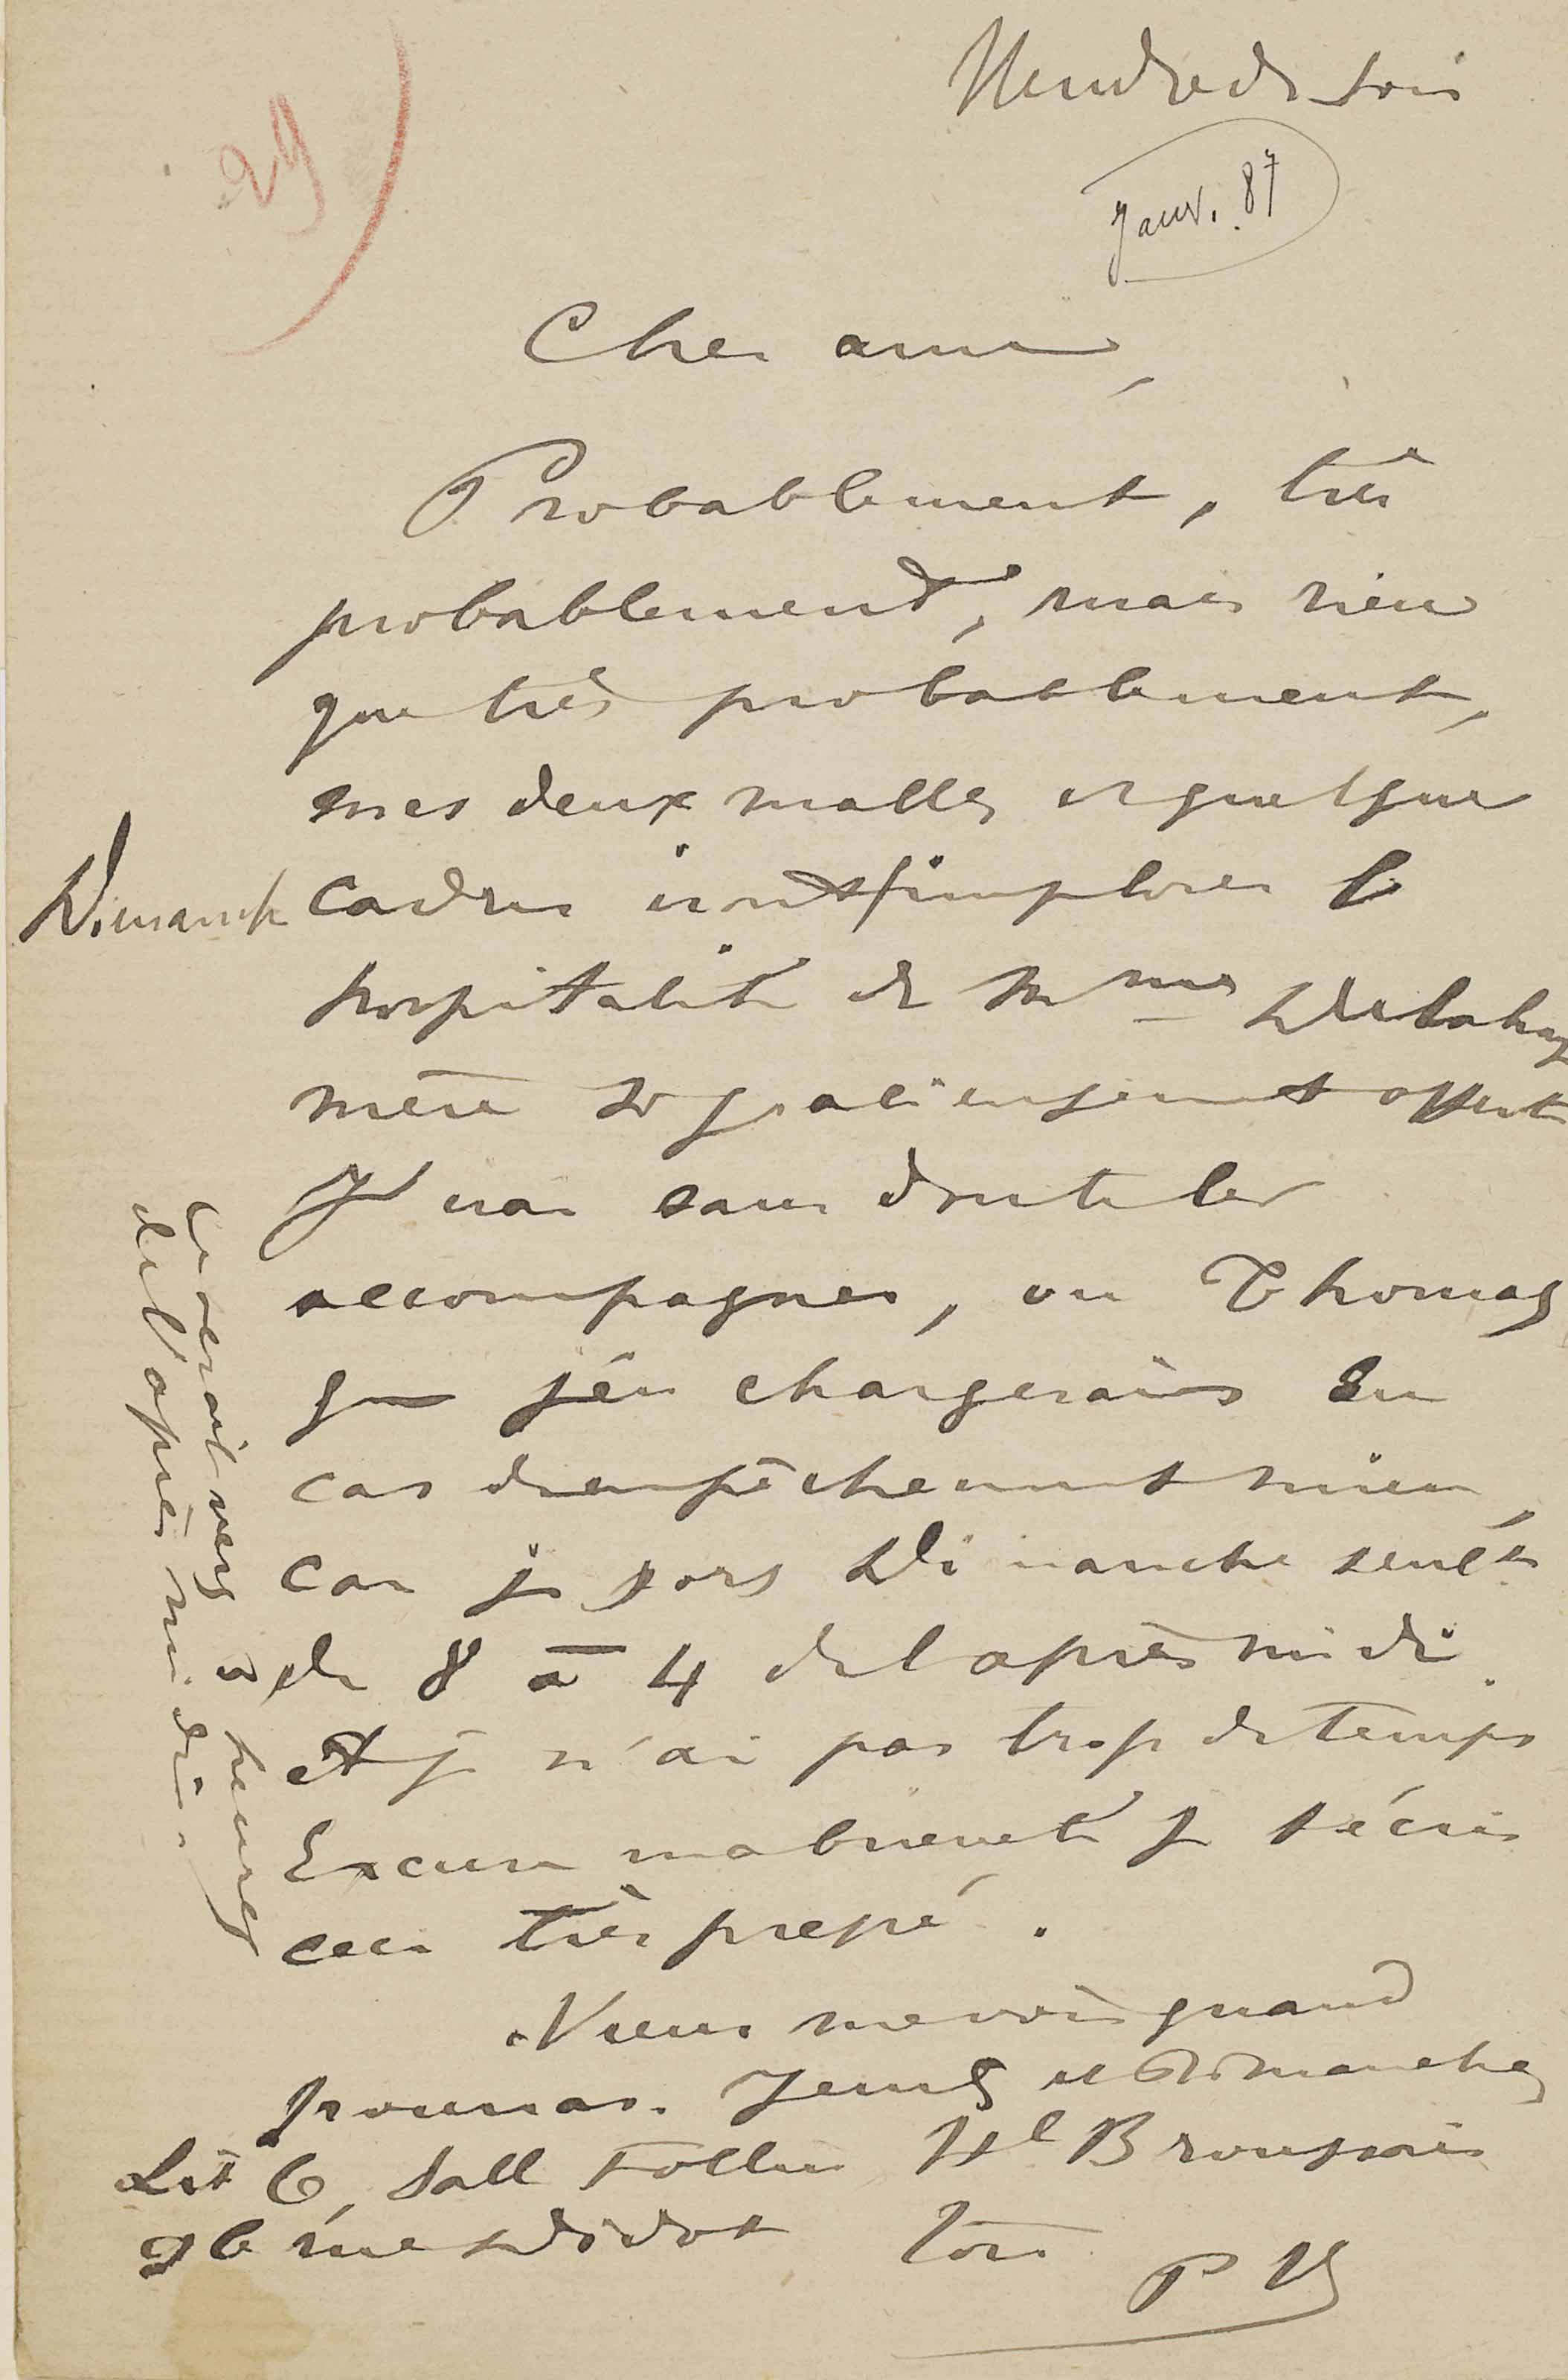 Vendredi soir
Janv. 87
29
Cher ami,
Probablement, très
probablement, mais rien
que très probablement,
mes deux malles et quelque
Dimanche
cadres iront implorer l
hospitalité de Mme Delahay
mère si gracieusement offerte
J'irai sans doute les
accompagner, ou Thomas
que j'en chargerais en
cas d'empêchement mien,
car je sors Dimanche seult
de 8 à 4 de l'après midi.
et je n'ai pas trop de temps
Excuse ma brièveté je t'écris
ceci très pressé.
Viens me voir quand
pourras. Jeudis et Dimanches
Lit 6, Salle Follin Hl Broussais
96 rue Didot Ton
P V
Ce serait vers 2 heures
de l'après midi.